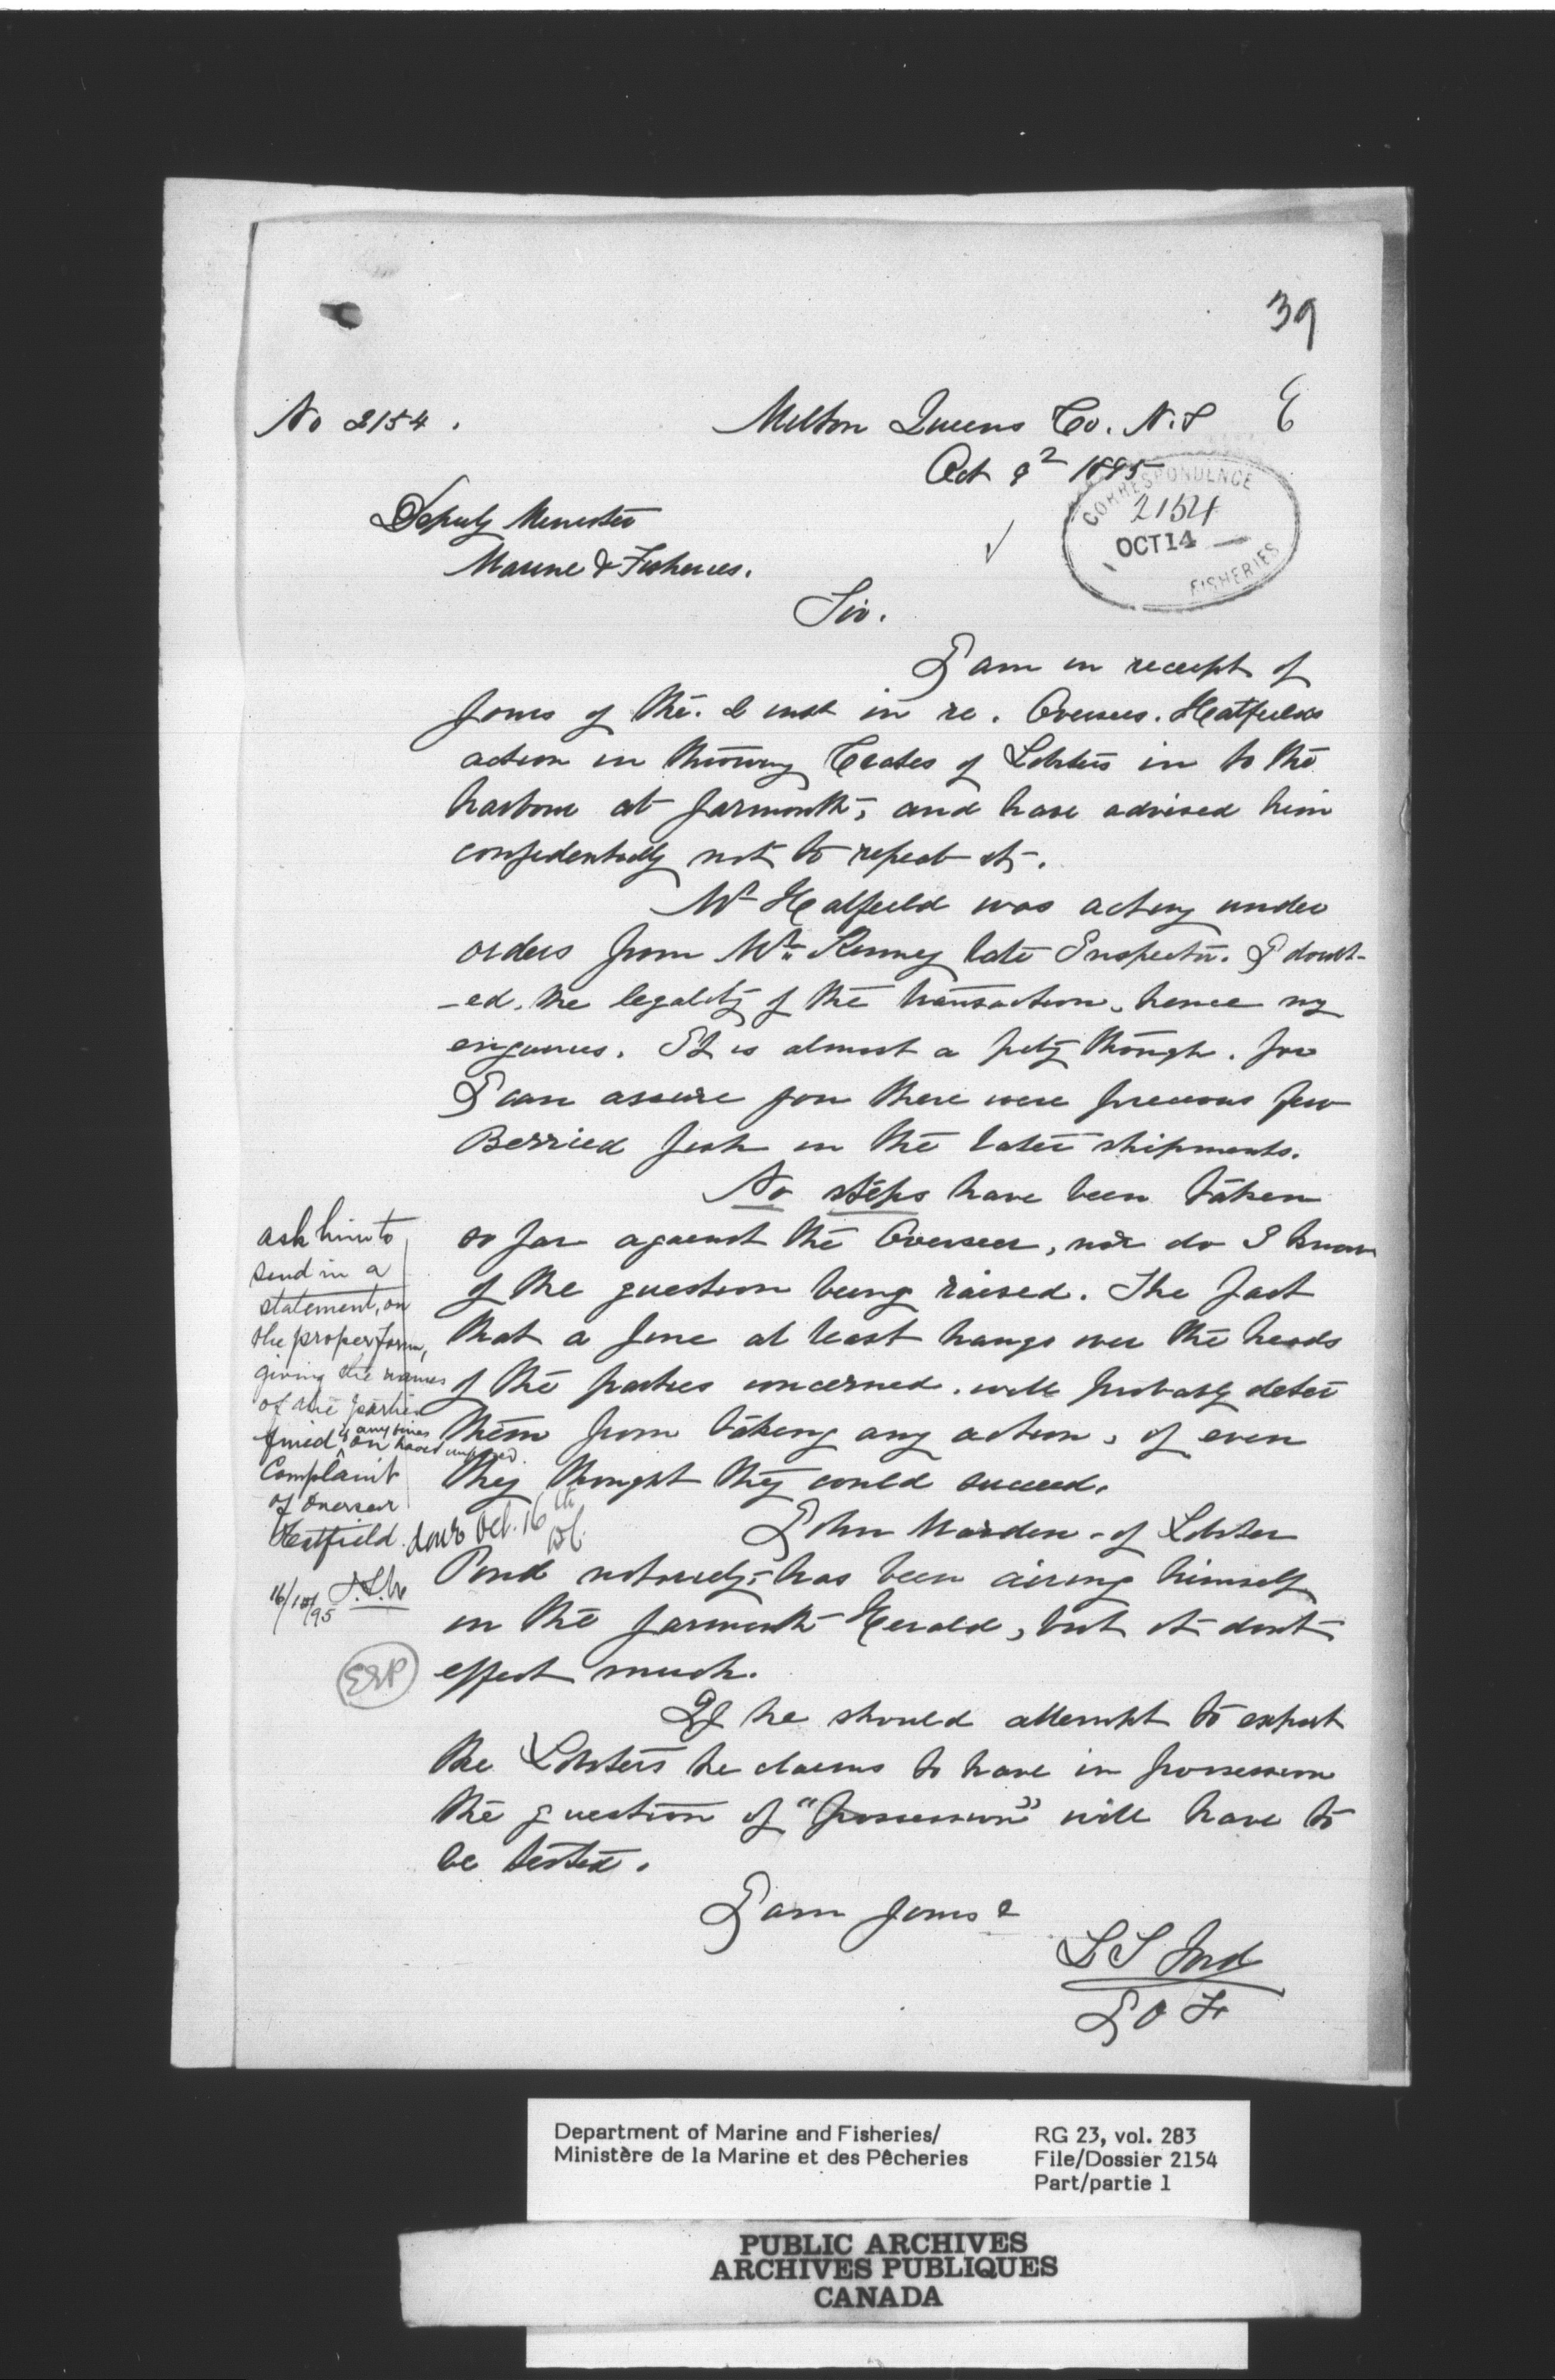 39
No 2154.
Milton Queens Co. N.S
E
Oct 9 1895
CORRESPONDENCE
2154
OCT 14
FISHERIES
Deputy Minister
Marine & Fisheries.
Sir.
I am in receipt of
yours of the. 2 inst in re. Overseer. Hatfields
action in throwing Crates of Lobsters in to the
harbour at Yarmouth, and have advised him
confidentially not to repeat it.
Mr Hatfield was acting under
orders from Mr Kinney late Inspector. I doubt-
-ed. the legality of the transaction, hence my
enquiries. It is almost a pity though. for
I can assure you there were precious few
Berried fish in the later shipments.
No steps have been taken
so far against the Overseer, nor do I know
of the question being raised. The fact
that a fine at least hangs over the heads
of the parties concerned. will probably deter
them from taking any action, if even
they thought they could succeed.
John Warden - of Lobster
Pond notoriety, has been airing himself
in the Yarmouth Herald, but it dont
effect much.
If he should attempt to export
the Lobsters he claims to have in possession
the question of "possession" will have to
be tested.
I am yours
L S Ford
I O F
ask him to
send in a
statement, on
the proper form,
giving the names
of the parties
fined on
complaint
of Overseer
Hatfield.
done Oct. 16th
16/10/95
Department of Marine and Fisheries/
Ministère de la Marine et des Pêcheries
RG 23, vol. 283
File/Dossier 2154
Part/partie 1
PUBLIC ARCHIVES
ARCHIVES PUBLIQUES
CANADA